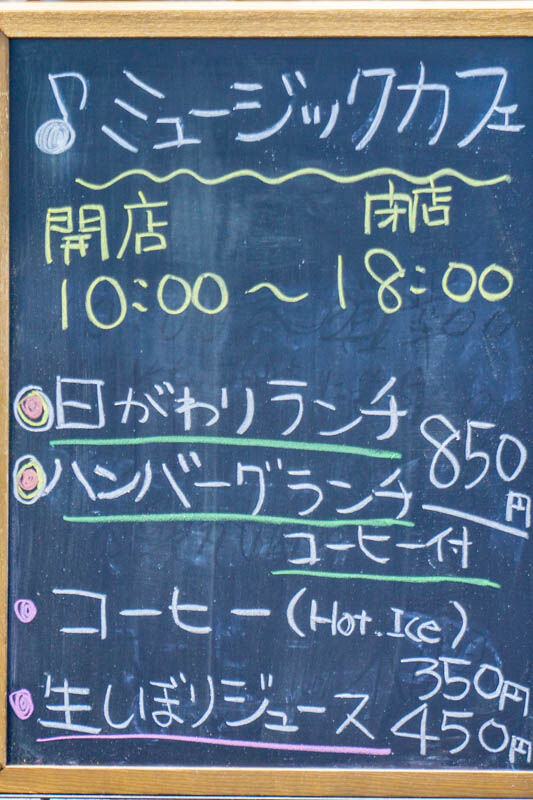 ♪ミュージックカフェ
開店 閉店
10:00〜18:00
日がわりランチ
ハンバーグランチ 850円
コーヒー付
コーヒー(Hot.Ice) 350円
生しぼりジュース 450円